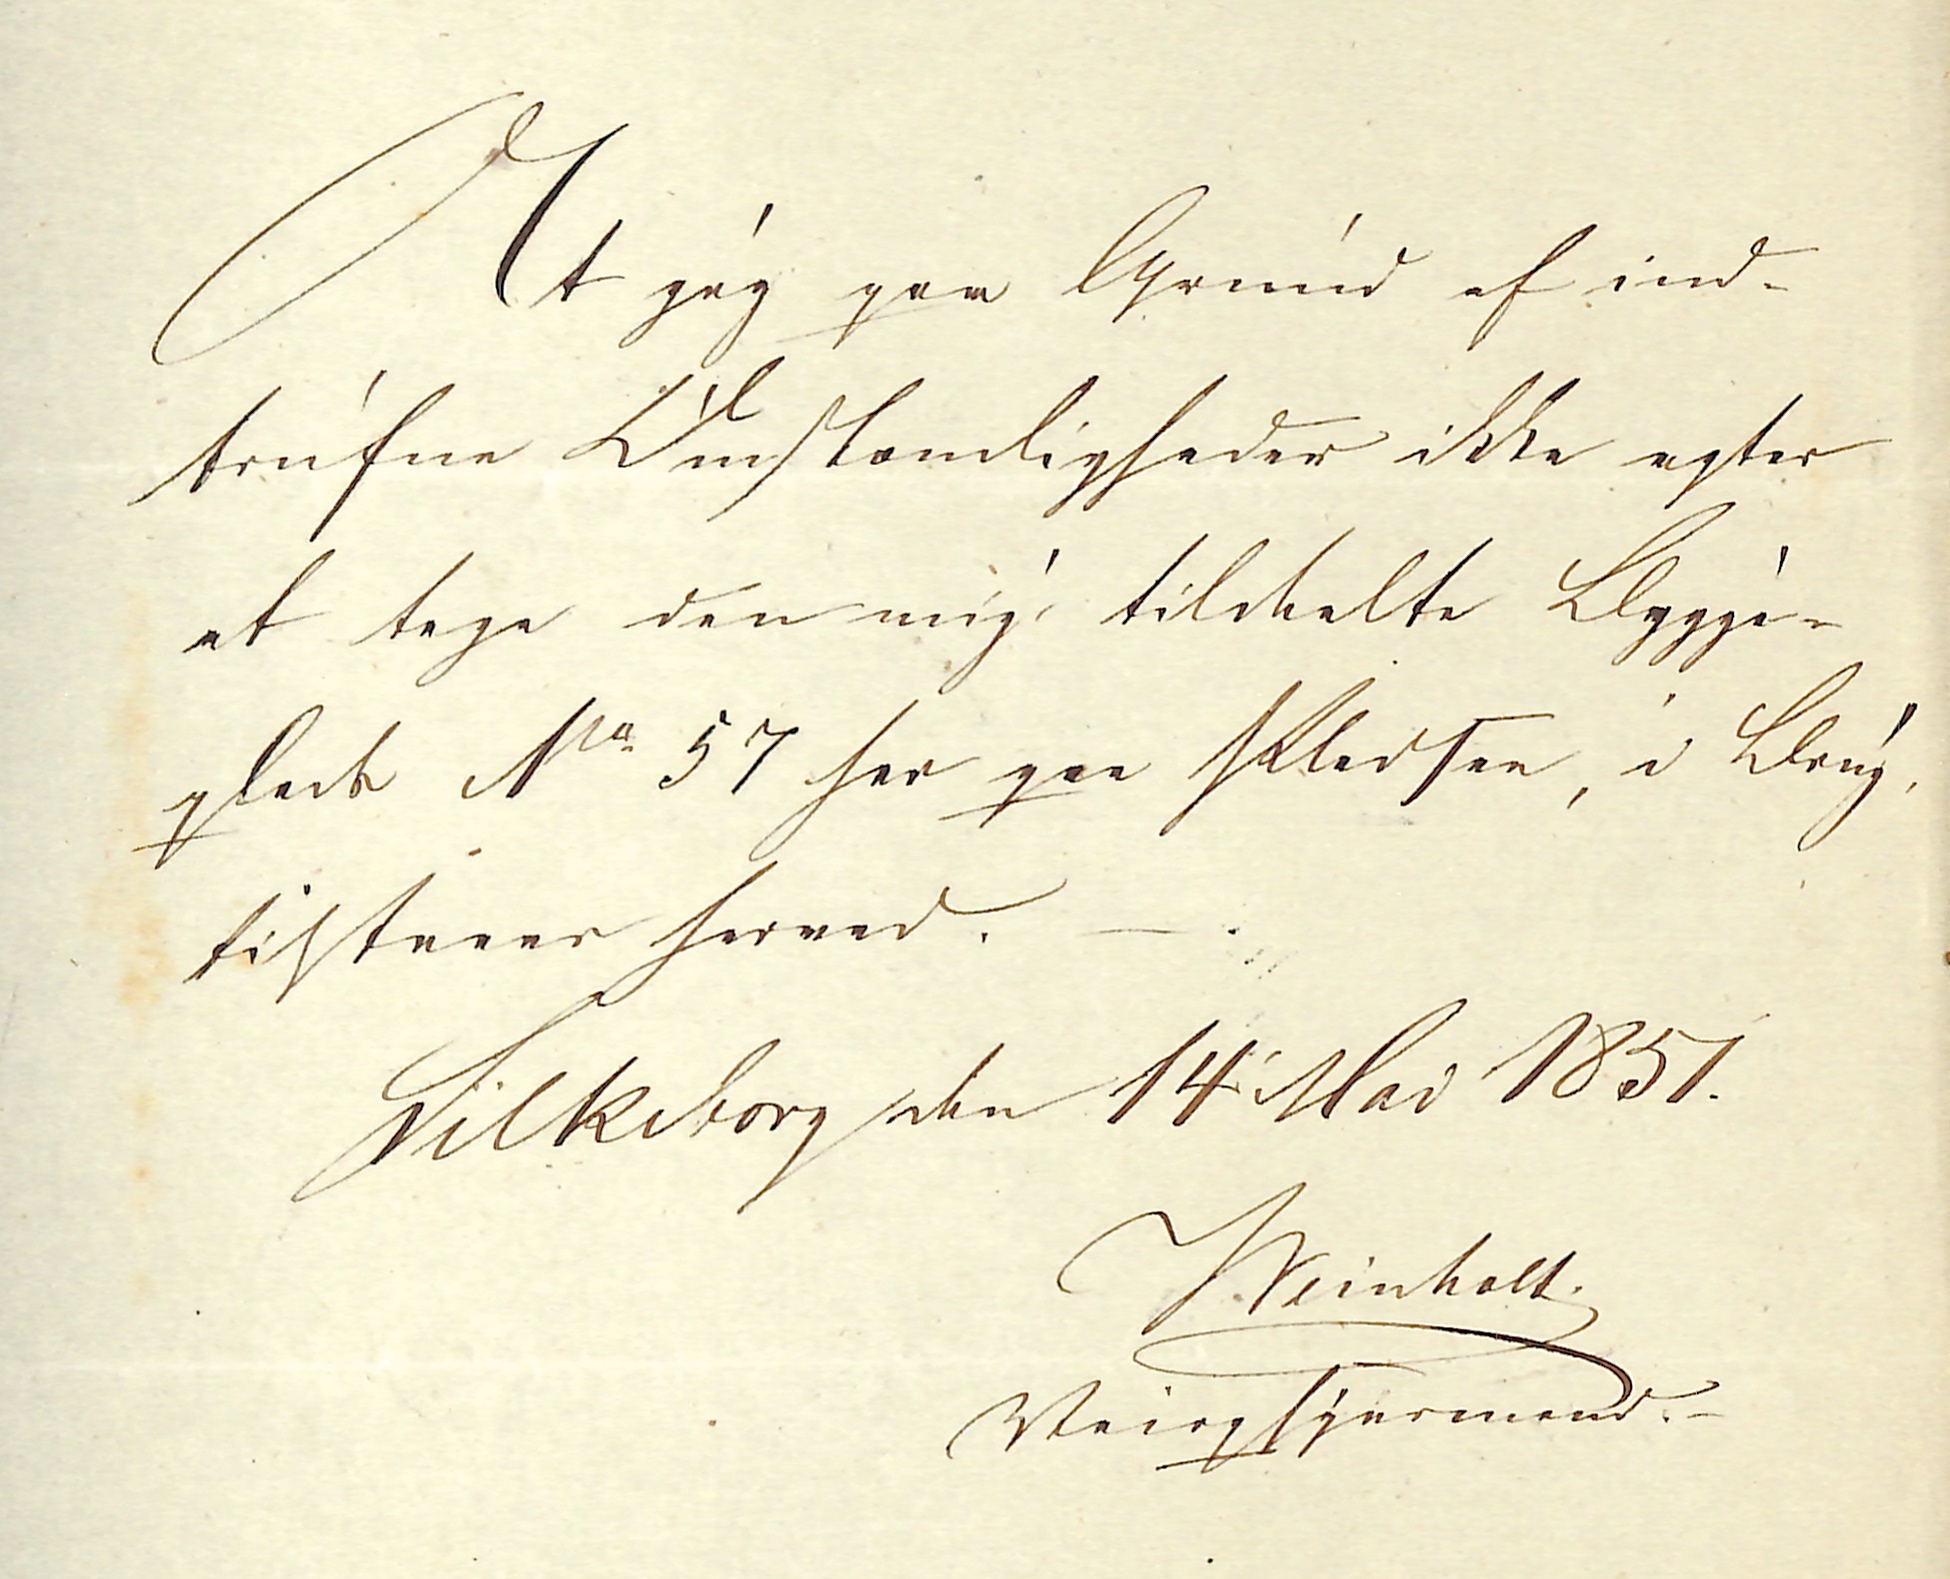 At jeg paa Grund af ind-
trufne Omstændigheder ikke agter
at tage den mig tildeelte Bygge-
plads No 57 her paa Pladsen, i Brug,
tilstaaer herved. —
Silkeborg den 14 Mai 1851.
Weinholt.
Veiopsynsmand.-